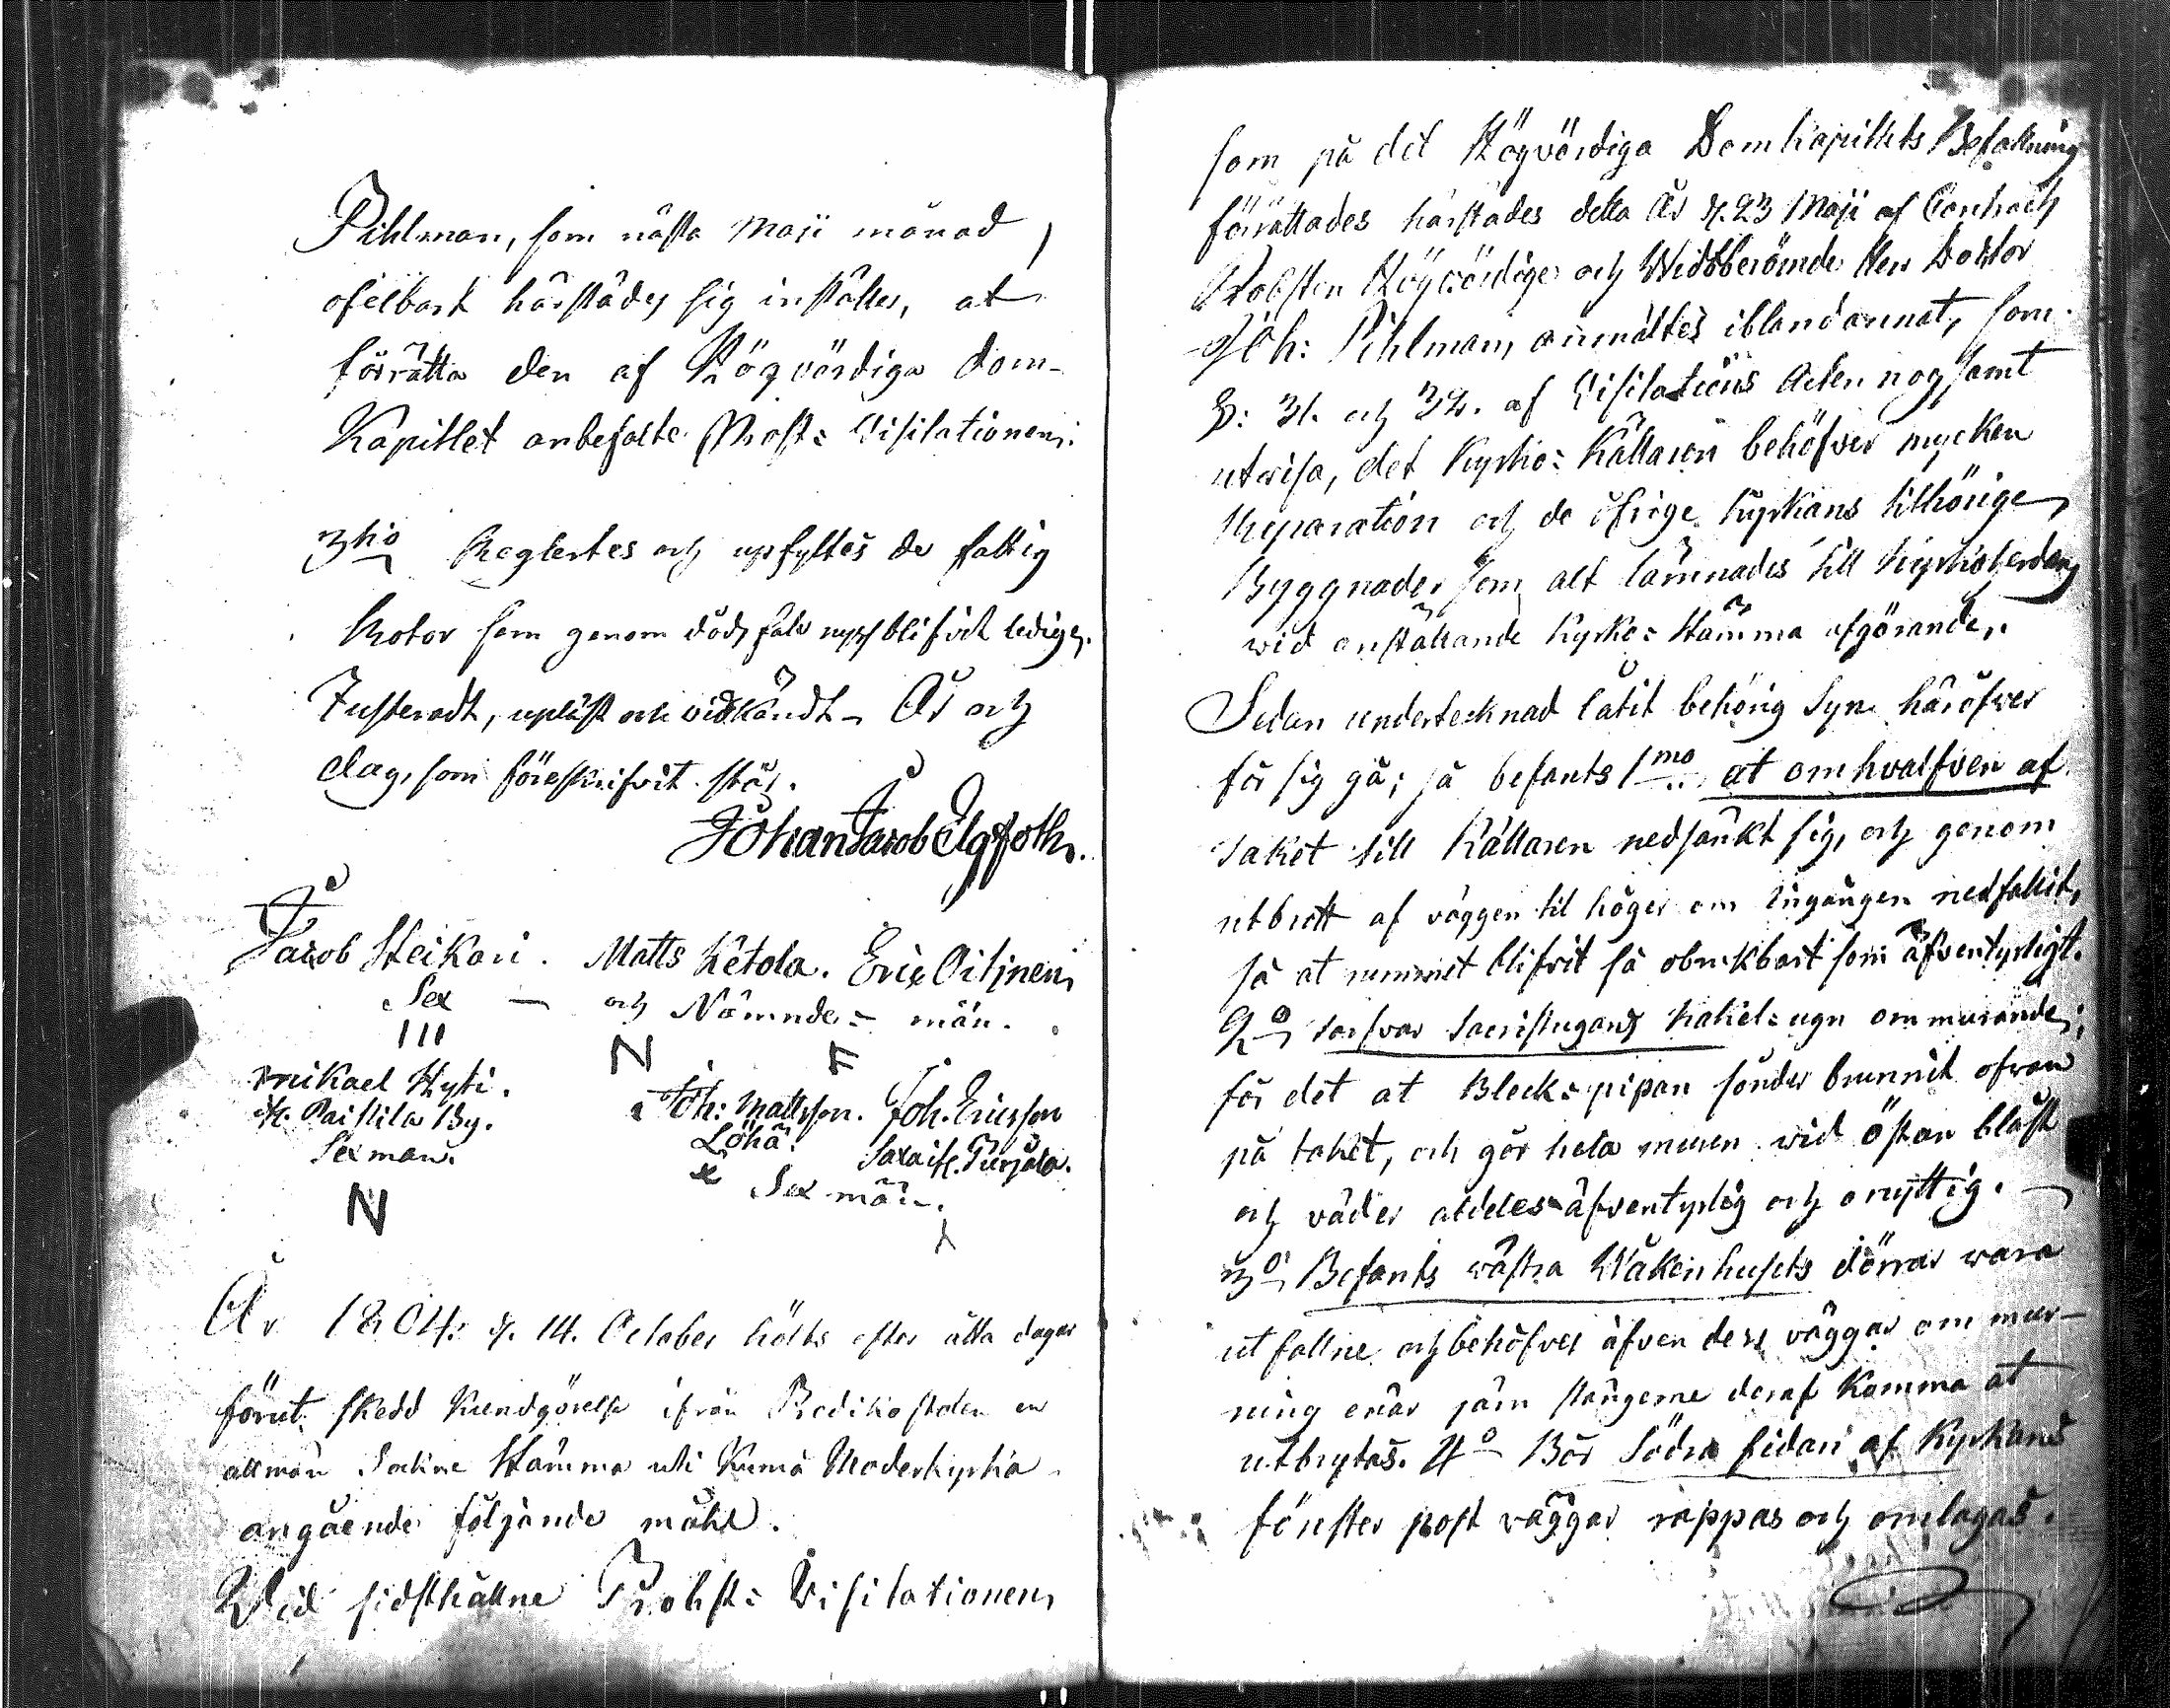 Pihlman, som nästa Maji månad
ofelbart härstädes sig inställer, at
förrätta den af Högvördiga Dom-
Kapitlet anbefalte Prost= Visitationen.
3tio Reglertes och upfyltes de fattig
Rotor som genom dödsfall upsblifvit ledige.
Justeradt, upläst och vidkändt År och
dag, som föreskrifvit står.
Johan Jacob Elgfoth.
Jacob Heikari. Matts Ketola. Eric Oitinen
Sex – och Nämnde= män.
III N F
Mikael Hyti.
ifr. Raistila By.
Sexman.
N
Joh: Mattsson. Joh. Ericsson
Löhä. Saxa ifr. Purjala.
Sex män.
År 1804. d. 14. October hölts efter åtta dagar
förut skedd Kundgörelse ifrån Predikostolen en
allmän Sockne Stämma uti Kumå Moderkyrka
angående följande måhl.
Wid sidsthållne Probst= Visitationen,
som på det Högvördiga Domkapitlets Befallning
förrättades härstädes detta År d. 23 Maji af Contracts
Probsten Högvördige och Widtberömde Herr Doktor
Joh: Pihlman, anmältes ibland annat, som
§: 31. och 32. af Visitations Acten nogsamt
utvisa, det Kyrko= Källaren behöfver mycken
Reparation och de öfrige Kyrkans tillhörige
Byggnader som alt lämnades till Kyrkoherdens
wid anställande Kyrko= Stämma afgörande.
Sedan undertecknad låtit behörig Syn häröfwer
för sig gå; så befants 1mo at omhvalfven af
taket till Källaren nedsänkt sig, och genom
utbrott af väggen til höger om Ingången nedfallit,
så at rummet blifvit så obrukbart som äfventyrligt.
2o tarfvar Sacristugans kakel=ugn ommurande;
för det at Bleck=pipan sönder brunnit ofvan
på taket, och gör hela muren wid östan blåst
och väder aldeles äfventyrlig och onyttig.
3o Befants wästra Wåkenhusets dörrar wara
utfallne och behöfver äfven dess väggar ommur-
ning enär järn stängerne deraf Kamma at
utbrytas. 4o Bör Södra sidan af Kyrkans
fönster post väggar rappas och omlagas.